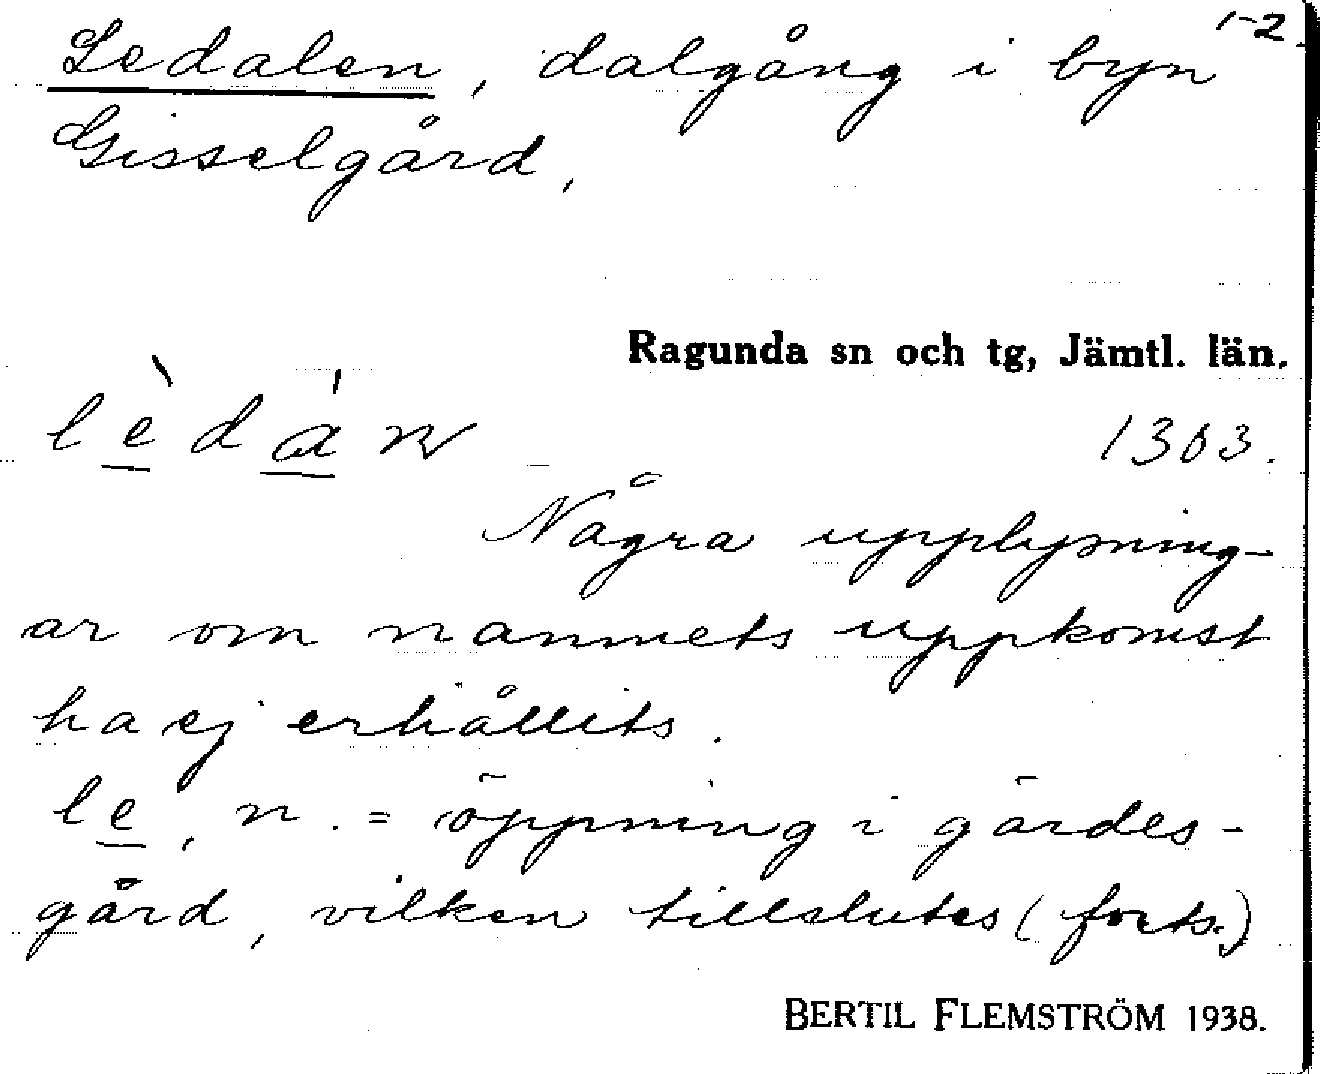 1-2
Ledalen, dalgång i byn
Gisselgård,
Ragunda sn och tg, Jämtl. län.
1303.
Några upplysning-
ar om namnets uppkomst
ha ej erhållits.
le, n. = öppning i gärdes-
gård, vilken tillslutes (forts.)
BERTIL FLEMSTRÖM 1938.